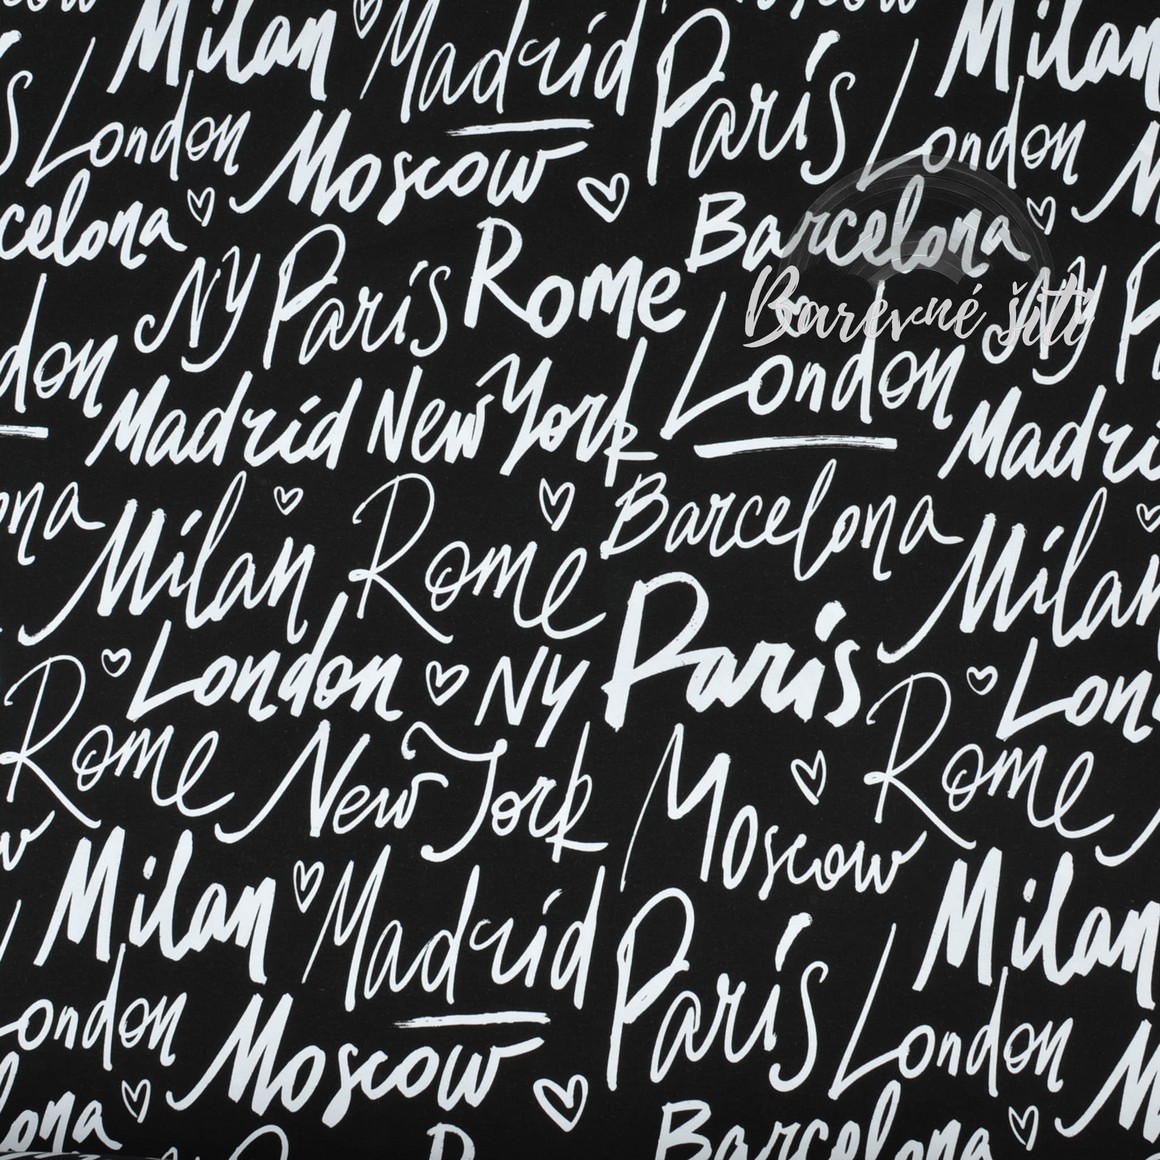 Milan Madrid Paris Milan
London Moscow London
celona Barcelona
NY Paris Rome NY
Barevné šití
don Madrid New York London Madri
ona Milan Rome Barcelona Milan
Rome London NY Paris Rome Lon
New York Moscow
Milan Madrid Paris Milan
ondon Moscow London
ona Barcelona